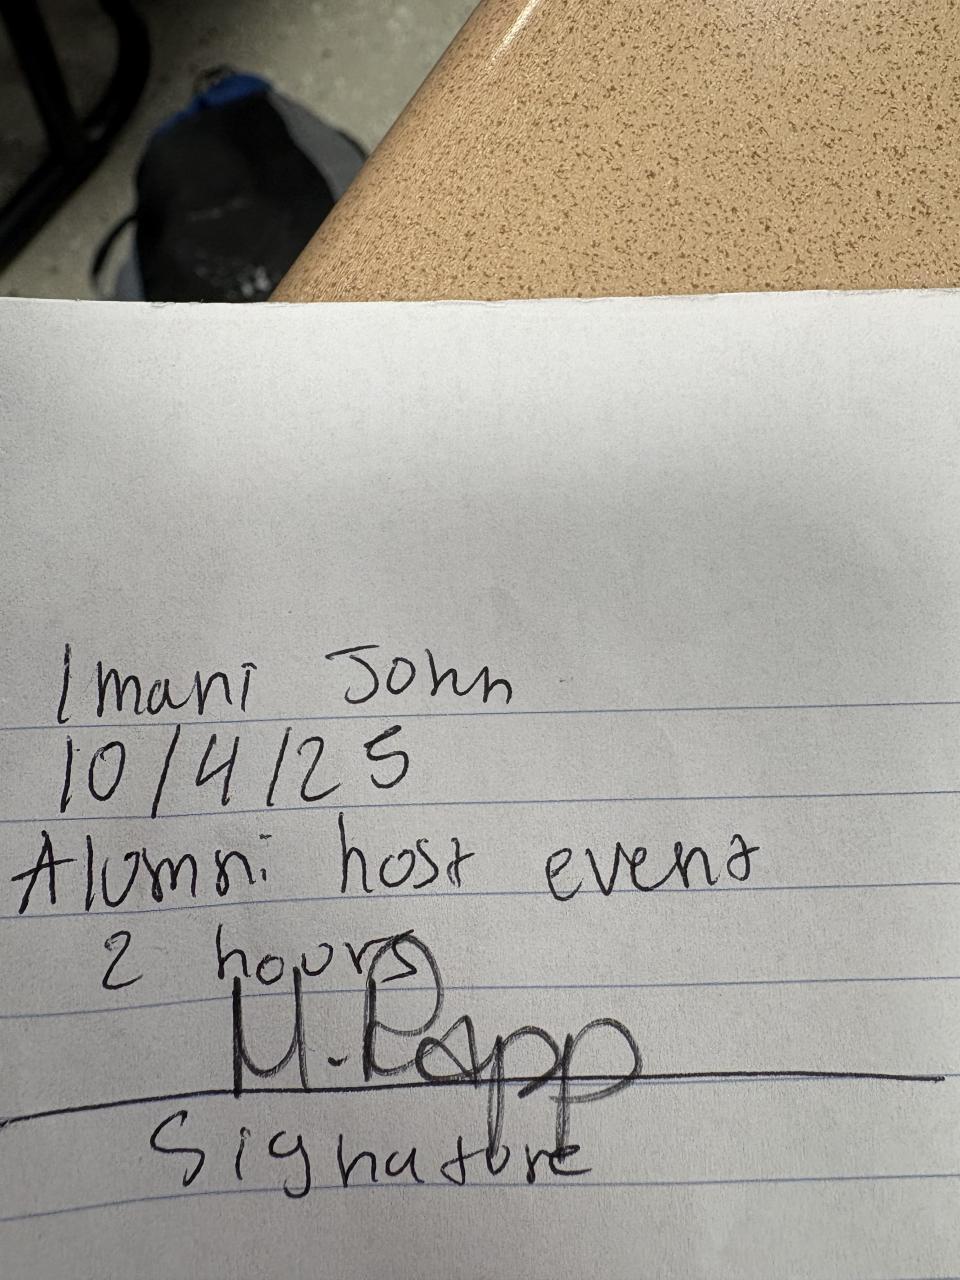 Imani John
10/4/25
Alumni host event
2 hours
M. Rapp
Signature